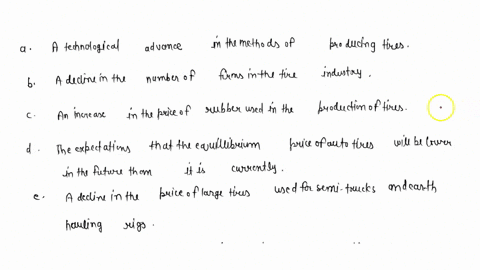 a. A technological advance in the methods of producing tires.
b. A decline in the number of firms in the tire industry.
c. An increase in the price of rubber used in the production of tires.
d. The expectations that the equilibrium price of auto tires will be lower
in the future than it is currently.
e. A decline in the price of large tires used for semi-trucks and earth
hauling rigs.